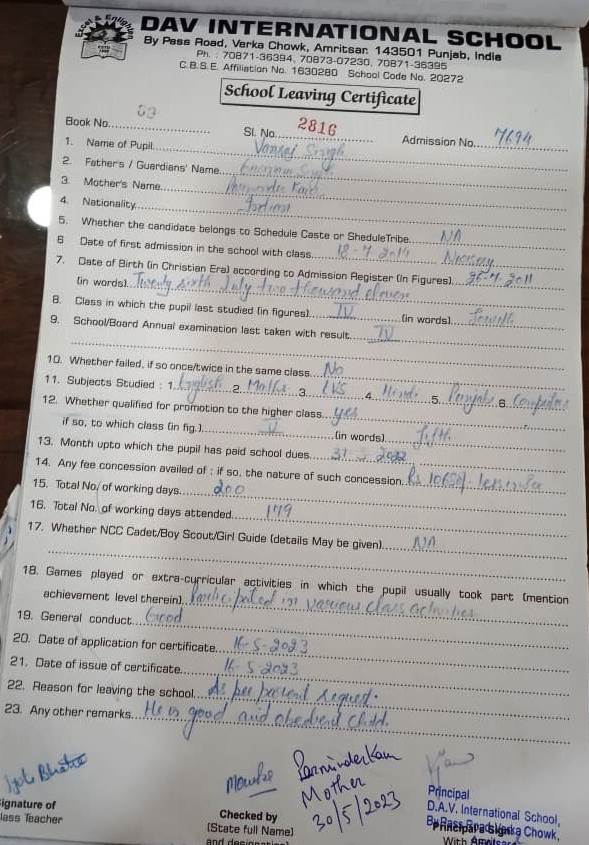 Excel & Enlighten
DAV INTERNATIONAL SCHOOL
By Pass Road, Verka Chowk, Amritsar. 143501 Punjab, India
Ph. : 70871-36394, 70873-07230, 70871-36395
C.B.S.E. Affiliation No. 1630280 School Code No. 20272
School Leaving Certificate
Book No. Sl. No. 2816 Admission No. 7694
1. Name of Pupil Singh
2. Father's / Guardians' Name
3. Mother's Name Parminder Kaur
4. Nationality Indian
5. Whether the candidate belongs to Schedule Caste or SheduleTribe NA
6 Date of first admission in the school with class Nursery
7. Date of Birth (in Christian Era) according to Admission Register (in Figures) 26.7.2011
(in words) Twenty sixth July two thousand eleven
8. Class in which the pupil last studied (in figures) IV (in words) fourth
9. School/Board Annual examination last taken with result IV
10. Whether failed, if so once/twice in the same class No
11. Subjects Studied : 1. English 2. Maths 3. EVS 4. Hindi 5. Punjabi 6. Computer
12. Whether qualified for promotion to the higher class yes
if so, to which class (in fig.) V (in words) fifth
13. Month upto which the pupil has paid school dues 31
14. Any fee concession availed of : if so, the nature of such concession Rs
15. Total No. of working days 200
16. Total No. of working days attended 179
17. Whether NCC Cadet/Boy Scout/Girl Guide (details May be given) NA
18. Games played or extra-curricular activities in which the pupil usually took part (mention
achievement level therein) Participated in various class activities
19. General conduct Good
20. Date of application for certificate 16-5-2023
21. Date of issue of certificate 16-5-2023
22. Reason for leaving the school As per parent request.
23. Any other remarks He is good and obedient child.
Jyoti Bhatia
Parminder Kaur
Mother
30/5/2023
ignature of
lass Teacher
Checked by
(State full Name)
and designation
Principal
D.A.V. International School,
By Pass Road, Verka Chowk,
Principal's Sign
With
Amritsar